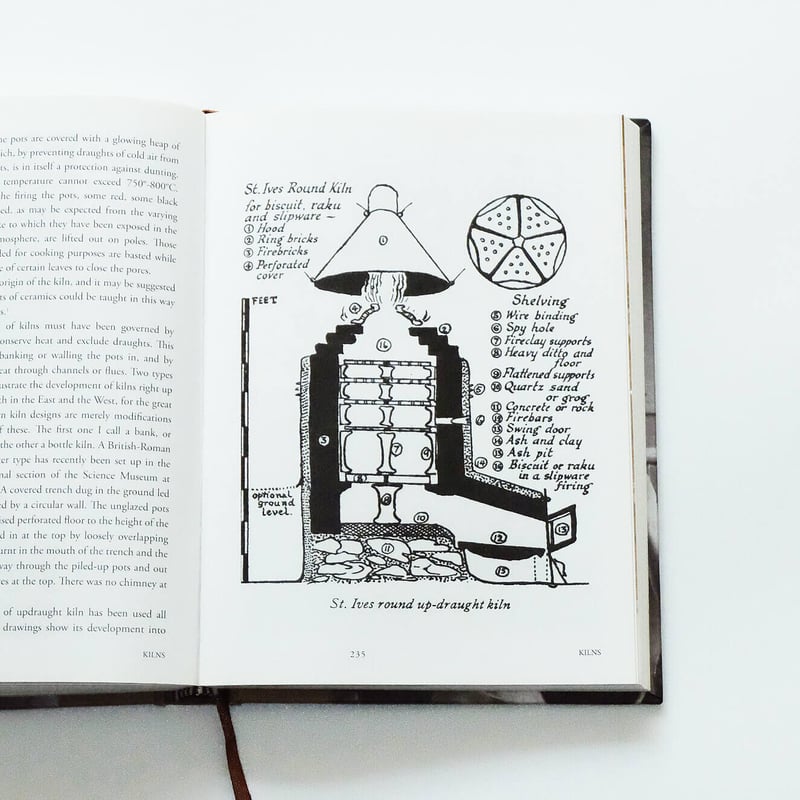 ne pots are covered with a glowing heap of
ich, by preventing draughts of cold air from
ts, is in itself a protection against dunting.
temperature cannot exceed 750°-800°C.
he firing the pots, some red, some black
ed, as may be expected from the varying
te to which they have been exposed in the
mosphere, are lifted out on poles. Those
ded for cooking purposes are basted while
e of certain leaves to close the pores.
origin of the kiln, and it may be suggested
ts of ceramics could be taught in this way
s.¹
of kilns must have been governed by
onserve heat and exclude draughts. This
banking or walling the pots in, and by
eat through channels or flues. Two types
ustrate the development of kilns right up
th in the East and the West, for the great
rn kiln designs are merely modifications
f these. The first one I call a bank, or
the other a bottle kiln. A British-Roman
er type has recently been set up in the
nal section of the Science Museum at
A covered trench dug in the ground led
d by a circular wall. The unglazed pots
ised perforated floor to the height of the
d in at the top by loosely overlapping
urnt in the mouth of the trench and the
way through the piled-up pots and out
es at the top. There was no chimney at
of updraught kiln has been used all
drawings show its development into
KILNS
St. Ives Round Kiln
for biscuit, raku
and slipware ~
① Hood
② Ring bricks
③ Firebricks
④ Perforated
cover
FEET
optional
ground
level.
Shelving
⑤ Wire binding
⑥ Spy hole
⑦ Fireclay supports
⑧ Heavy ditto and
floor
⑨ Flattened supports
⑩ Quartz sand
or grog
⑪ Concrete or rock
⑫ Firebars
⑬ Swing door
⑭ Ash and clay
⑮ Ash pit
⑯ Biscuit or raku
in a slipware
firing
①
④
②
⑯
⑤
⑥
③
⑦
⑨
⑭
⑧
⑧
⑩
⑪
⑫
⑬
⑮
St. Ives round up-draught kiln
235
KILNS